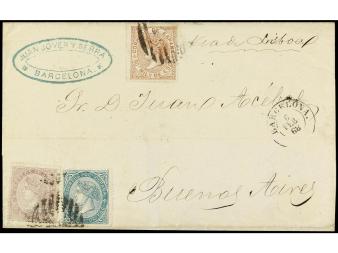 JUAN JOVER Y SERRA
BARCELONA.
Via de Lisboa
Sr. D. Juan
BARCELONA
6
FEB
68
Buenos Aires